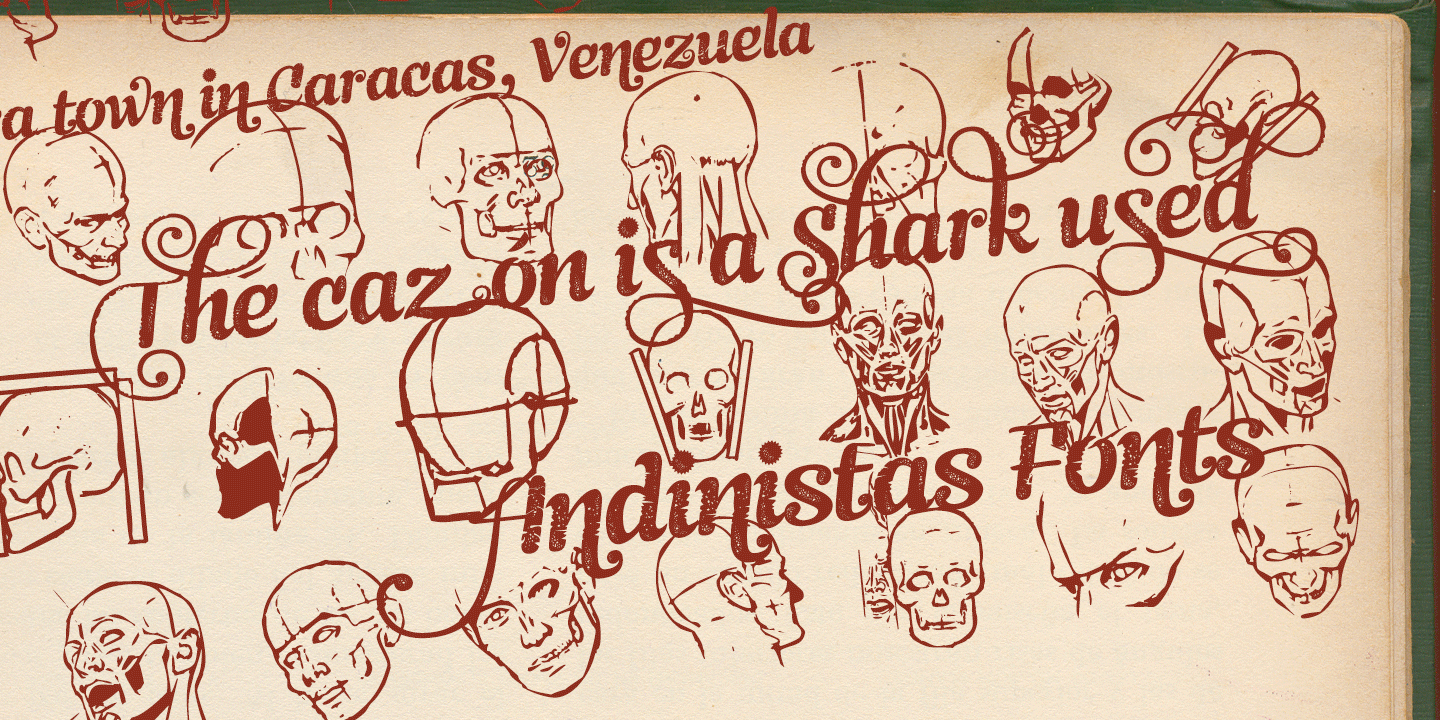 a town in Caracas, Venezuela
The caz on is a shark used
Indinistas Fonts